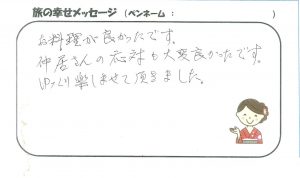 旅の幸せメッセージ (ペンネーム: )
お料理が良かったです。
仲居さんの応対も大変良かったです。
ゆっくり楽しませて頂きました。